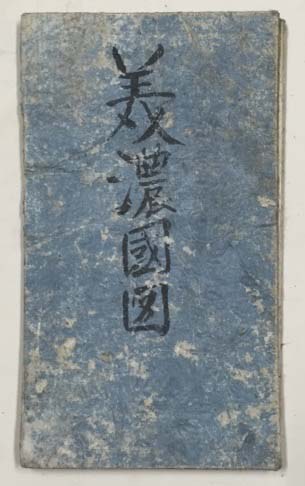 美濃國図